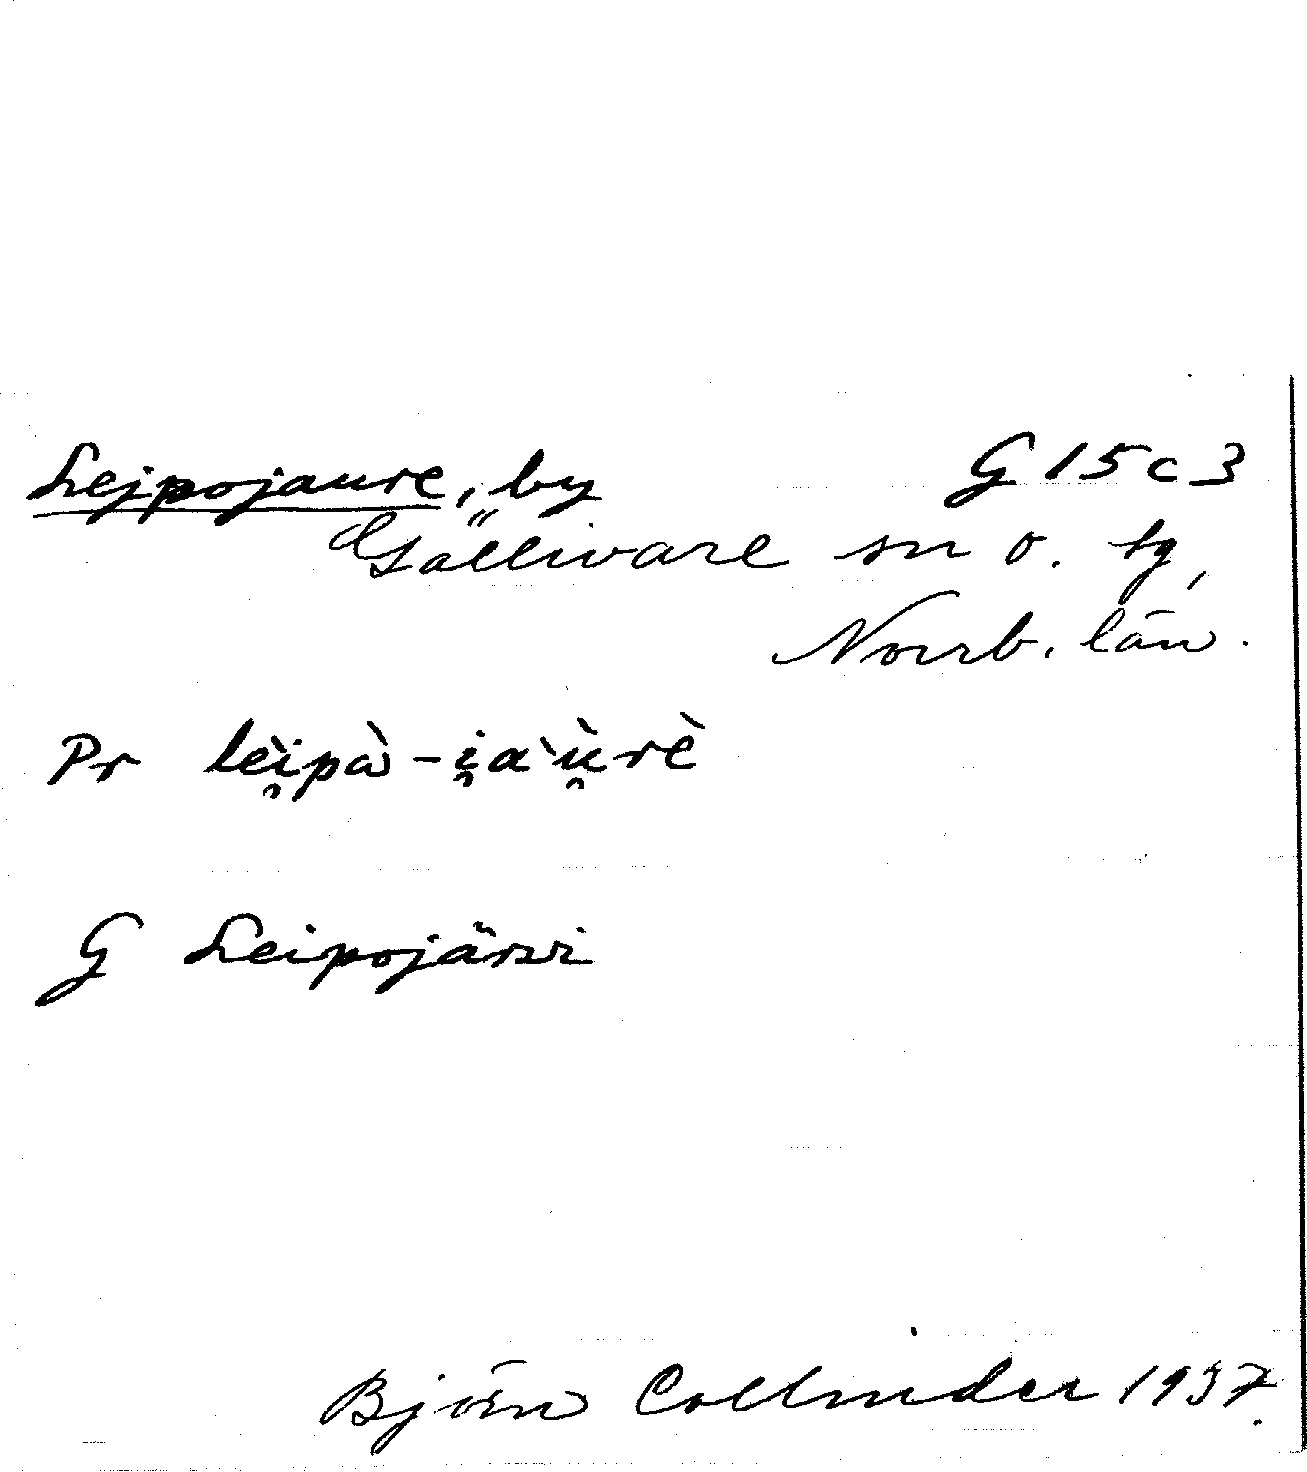 Lejpojaure, by G 15 c 3
Gällivare sn o. tg,
Norrb. län.
Pr lèi̯pà-i̯a`ù̯rè
G Leipojärvi
Björn Collinder 1937.